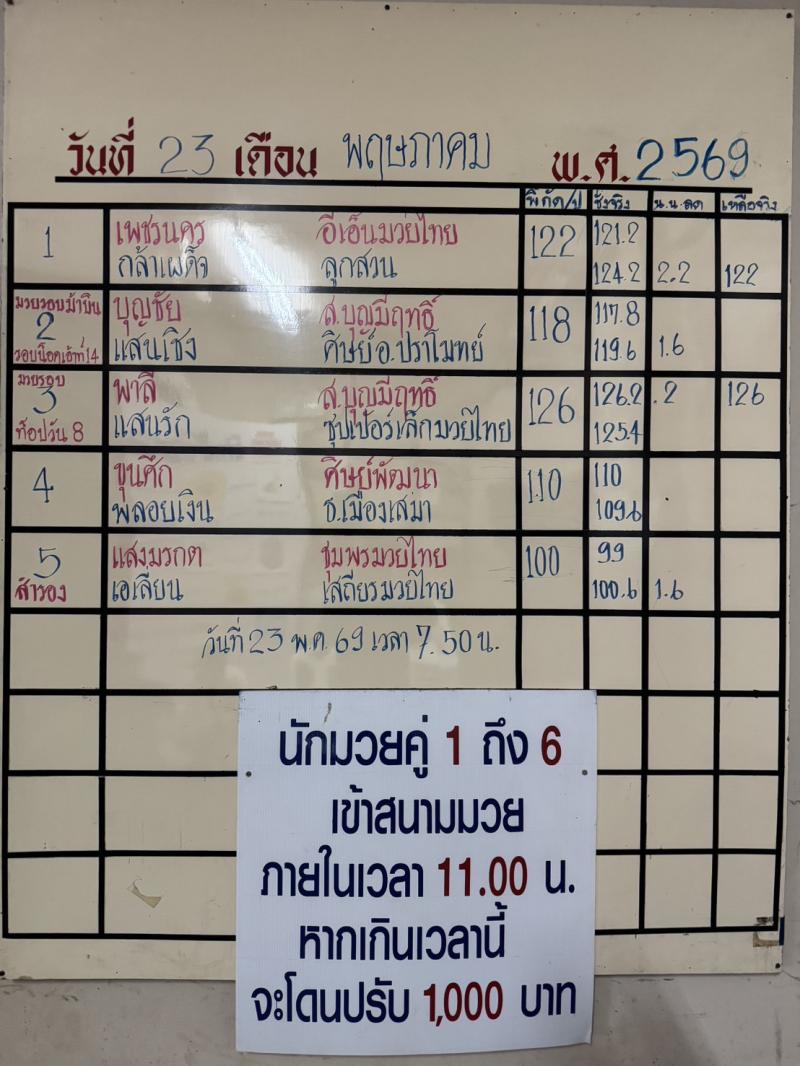 วันที่ 23 เดือน พฤษภาคม พ.ศ. 2569
พิกัด/ป ชั่งจริง น.น.ลด เหลือจริง
1 เพชรนคร อีเอ็นมวยไทย 122 121.2
กล้าเผด็จ ลูกสวน 124.2 2.2 122
มวยรอบม้าบิน
2 บุญชัย ส.บุญมีฤทธิ์ 118 117.8
รอบน็อคเอ้าท์ 14 แสนเชิง ศิษย์อ.ปราโมทย์ 119.6 1.6
มวยรอบ
3 พาลี ส.บุญมีฤทธิ์ 126 126.2 .2 126
ท็อปวัน 8 แสนรัก ซุปเปอร์เล็กมวยไทย 125.4
4 ขุนศึก ศิษย์พัฒนา 110 110
พลอยเงิน ธ.เมืองเสมา 109.6
5 แสงมรกต ชุมพรมวยไทย 100 99
สำรอง เอเลียน เสถียรมวยไทย 100.6 1.6
วันที่ 23 พ.ค. 69 เวลา 7.50 น.
นักมวยคู่ 1 ถึง 6
เข้าสนามมวย
ภายในเวลา 11.00 น.
หากเกินเวลานี้
จะโดนปรับ 1,000 บาท